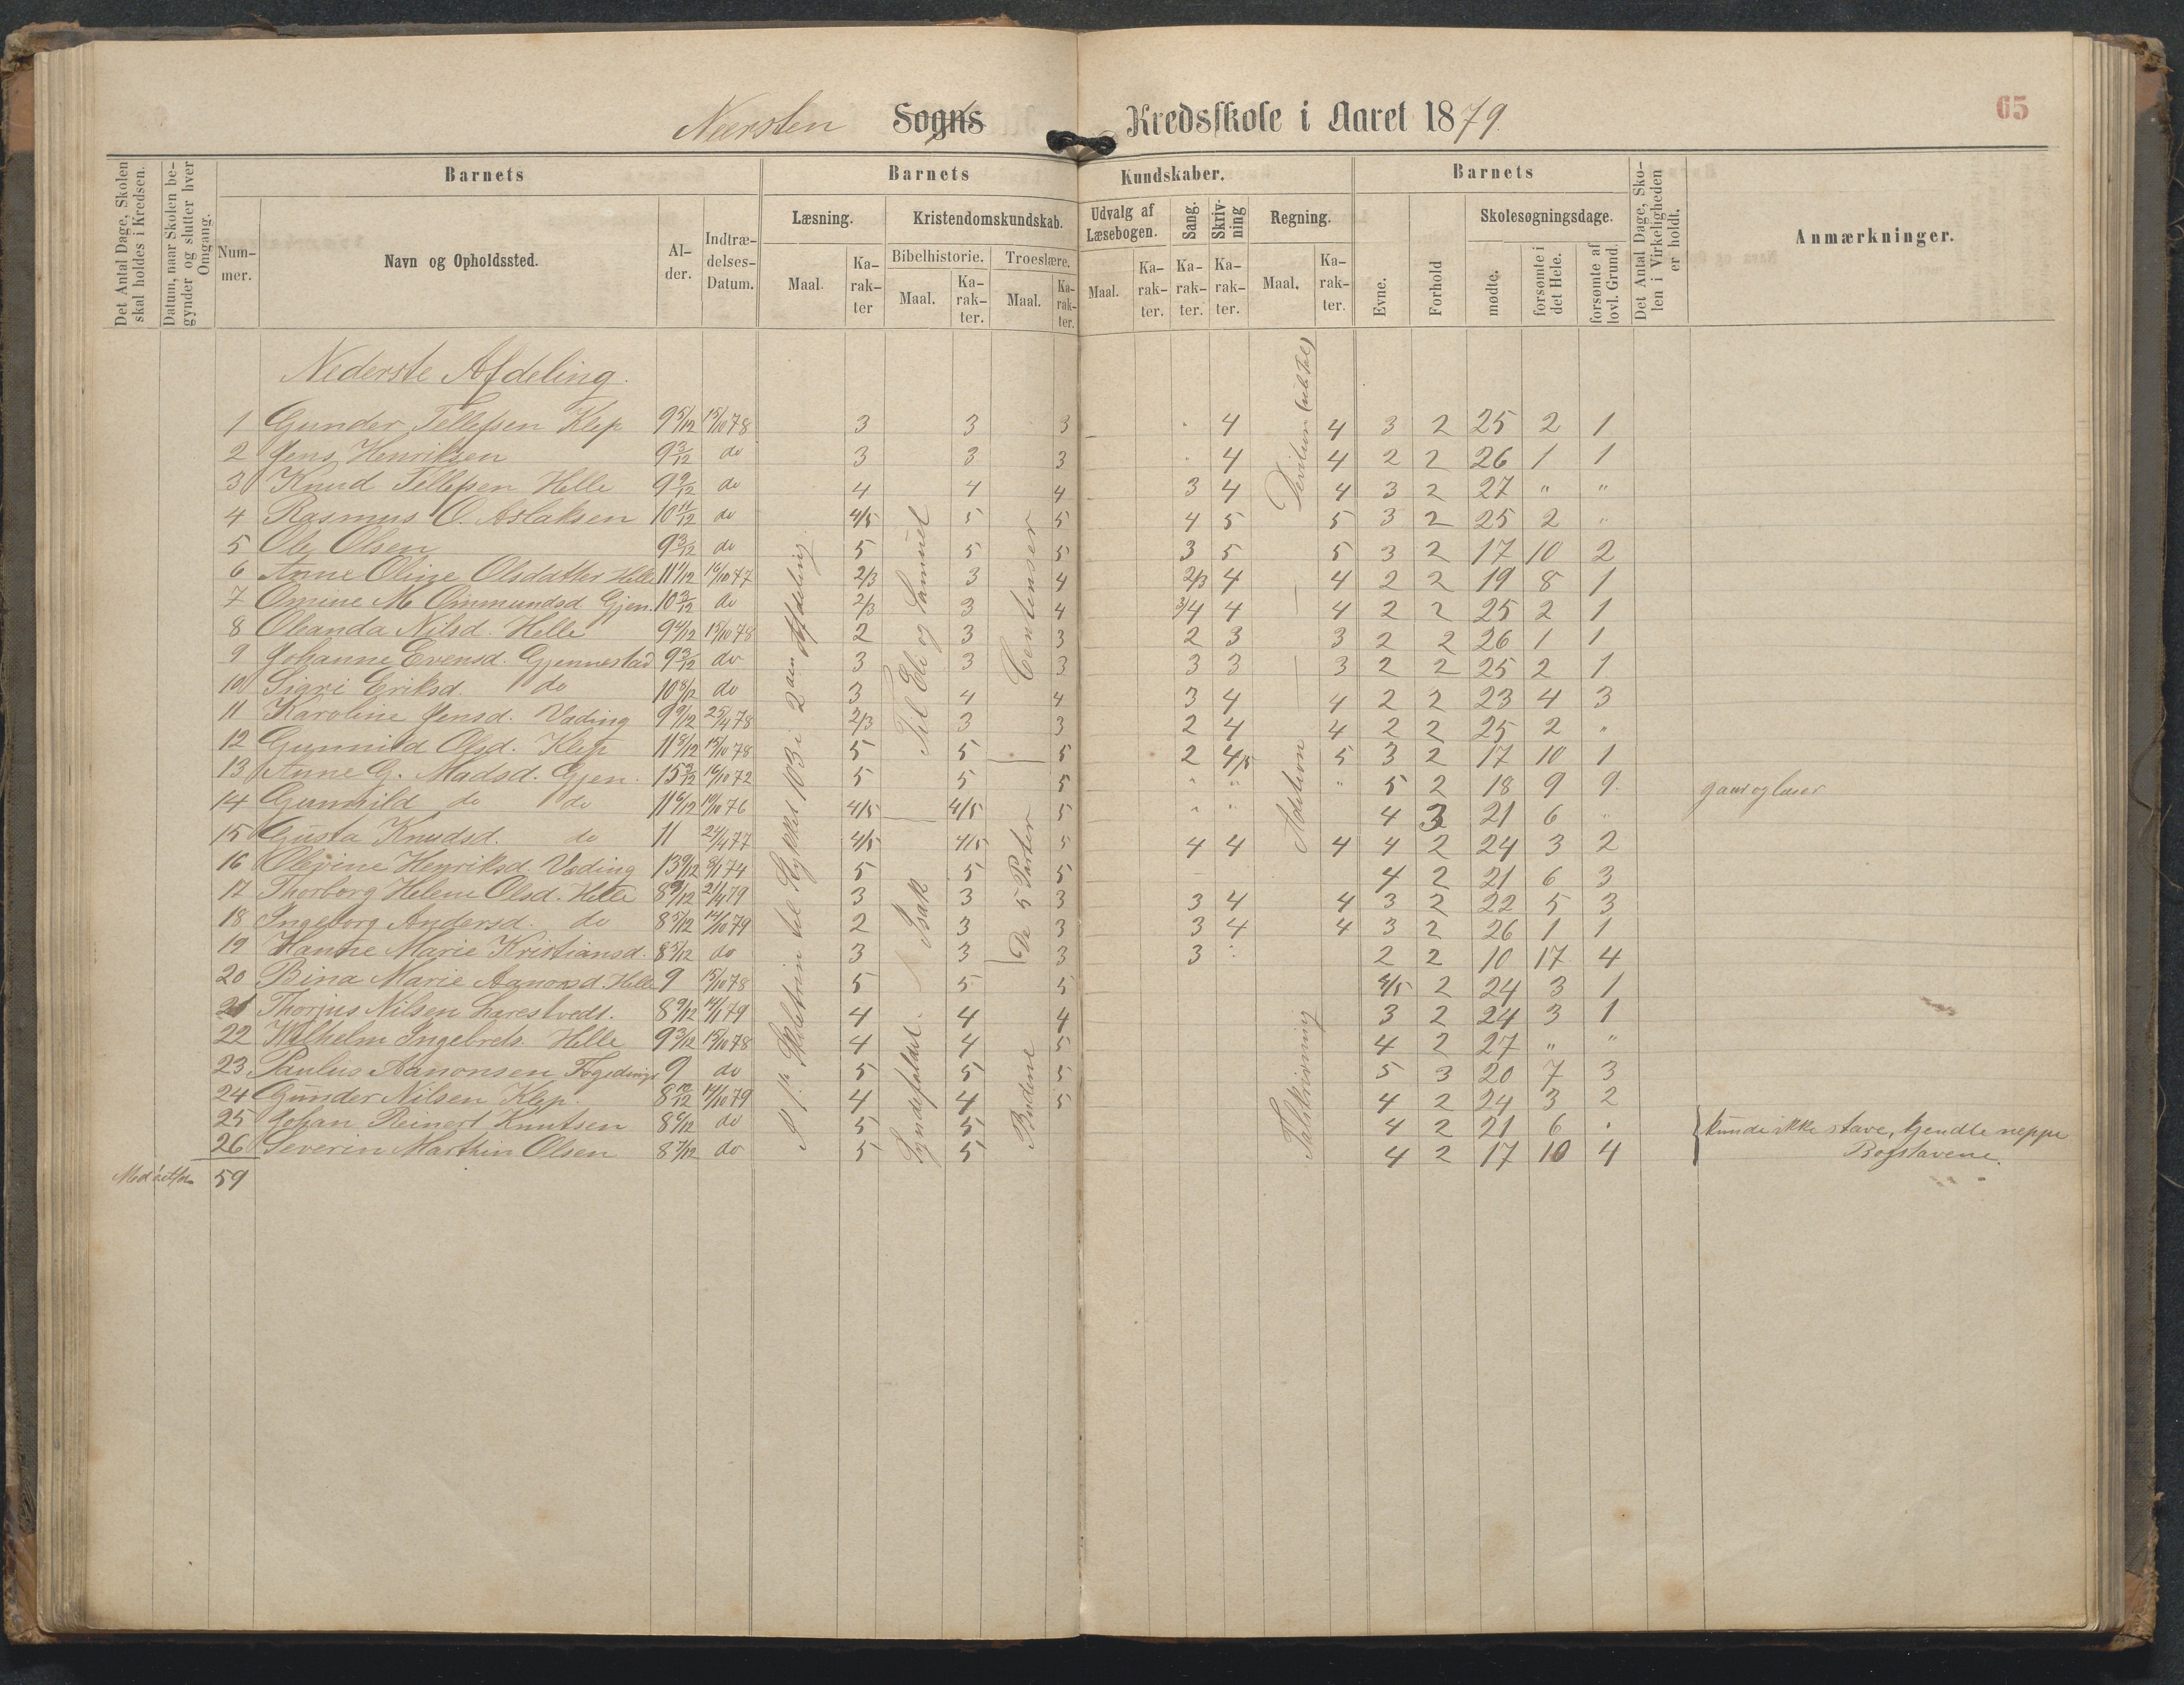 Nærsten Sogns Kredsskole i Aaret 1879.
65
Det Antal Dage, Skolen skal holdes i Kredsen.
Datum, naar Skolen begynder og slutter hver Omgang.
Barnets
Barnets
Kundskaber.
Barnets
Det Antal Dage, Skolen i Virkeligheden er holdt.
Anmærkninger.
Nummer.
Navn og Opholdssted.
Alder.
Indtrædelses-Datum.
Læsning.
Kristendomskundskab.
Udvalg af Læsebogen.
Sang.
Skrivning
Regning.
Evne.
Forhold
Skolesøgningsdage.
Maal. Karakter
Bibelhistorie. Troeslære.
Maal. Karakter. Maal. Karakter.
Maal. Karakter. Karakter. Karakter. Maal. Karakter.
mødte. forsømte i det Hele. forsømte af lovl. Grund.
Nederste Afdeling.
1 Gunder Tellefsen Klep 9 5/12 15/10 78 3 3 3 4 4 3 2 25 2 1
2 Jens Henriksen 9 3/12 do 3 3 3 4 4 2 2 26 1 1
3 Knud Tellefsen Helle 9 9/12 do 4 4 4 3 4 4 3 2 27 " "
4 Rasmus O. Aslaksen 10 11/12 do 4/5 5 5 4 5 5 3 2 25 2 "
5 Ole Olsen 9 3/12 do 5 5 5 3 5 5 3 2 17 10 2
6 Anne Oline Olsdatter Helle 11 1/12 16/10 77 2/3 3 4 2/3 4 4 2 2 19 8 1
7 Omine M. Ommundsd Gjen. 10 3/12 do 2/3 3 4 3/4 4 4 2 2 25 2 1
8 Oleanda Nilsd. Helle 9 4/12 15/10 78 2 3 3 2 3 3 2 2 26 1 1
9 Johanne Evensd. Gjennestad 9 3/12 do 3 3 3 3 3 3 2 2 25 2 1
10 Sigri Eriksd. do 10 8/12 do 3 4 4 3 4 4 2 2 23 4 3
11 Karoline Jensd. Væding 9 9/12 25/4 78 2/3 3 3 2 4 4 2 2 25 2 "
12 Gunnild Olsd. Klep 11 8/12 15/10 78 5 5 5 2 4/5 5 3 2 17 10 1
13 Anne G. Madsd. Gjen. 15 3/12 16/10 72 5 5 5 " " " 5 2 18 9 9
14 Gunnild do do 11 6/12 19/10 76 4/5 4/5 5 " " 4 3 21 6 "
15 Gusta Knudsd. do 11 24/4 77 4/5 4/5 5 4 4 4 4 2 24 3 2
16 Olevine Henriksd Væding 13 9/12 9/1 74 5 5 5 4 2 21 6 3
17 Thorborg Helene Olsd. Helle 8 9/12 21/4 79 3 3 3 3 4 4 3 2 22 5 3
18 Ingeborg Andersd. do 8 5/12 14/10 79 2 3 3 3 4 4 3 2 26 1 1
19 Hanne Marie Kristiansd. 8 5/12 do 3 3 3 3 2 2 10 17 4
20 Bina Marie Aanonsd. Helle 9 15/10 78 5 5 5 4/5 2 24 3 1
21 Thorjus Nilsen Larestvedt. 8 9/12 14/1 79 4 4 4 3 2 24 3 1
22 Wilhelm Ingebrets. Helle 9 3/12 15/10 78 4 4 5 4 2 27 " "
23 Paulus Aanonsen 9 do 5 5 5 5 3 20 7 3
24 Gunder Nilsen Klep. 8 10/12 14/10 79 4 4 5 4 2 24 3 2
25 Johan Reinert Knutsen 8 6/12 do 5 5 4 2 21 6 "
26 Severin Marthin Olsen 8 7/12 do 5 5 4 2 17 10 4
59
Stykket 103 i 2den Afdeling
Til Eli og Samuel
Isak
Syndefaldet.
Centenser
De 5 Parter
Budene
Division
Addition
Talskrivning
kunde ikke stave, kjendte neppe
Bogstavene.